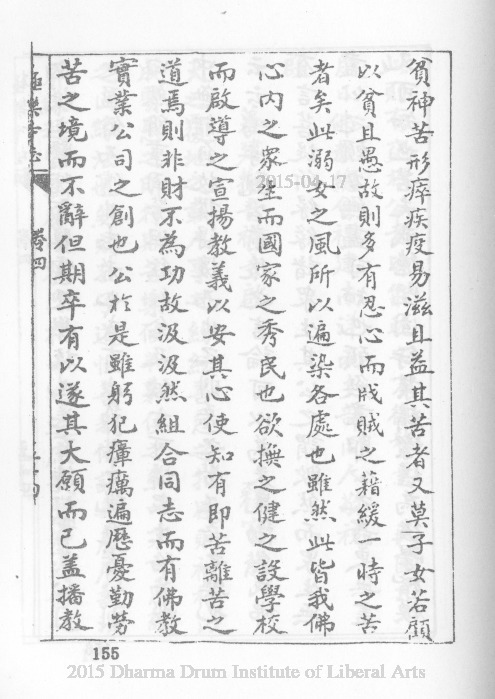 貧神苦形瘁疾疫易滋且益其苦者又莫子女若顧
以貧且愚故則多有忍心而戕賊之藉緩一時之苦
者矣此溺女之風所以遍染各處也雖然此皆我佛
心內之眾生而國家之秀民也欲撫之健之設學校
而啟導之宣揚教義以安其心使知有即苦離苦之
道焉則非財不為功故汲汲然組合同志而有佛教
實業公司之創也公於是雖躬犯瘴癘遍歷憂勤勞
苦之境而不辭但期卒有以遂其大願而已蓋播教
極樂寺志
卷四
155
2015-04-17
2015 Dharma Drum Institute of Liberal Arts